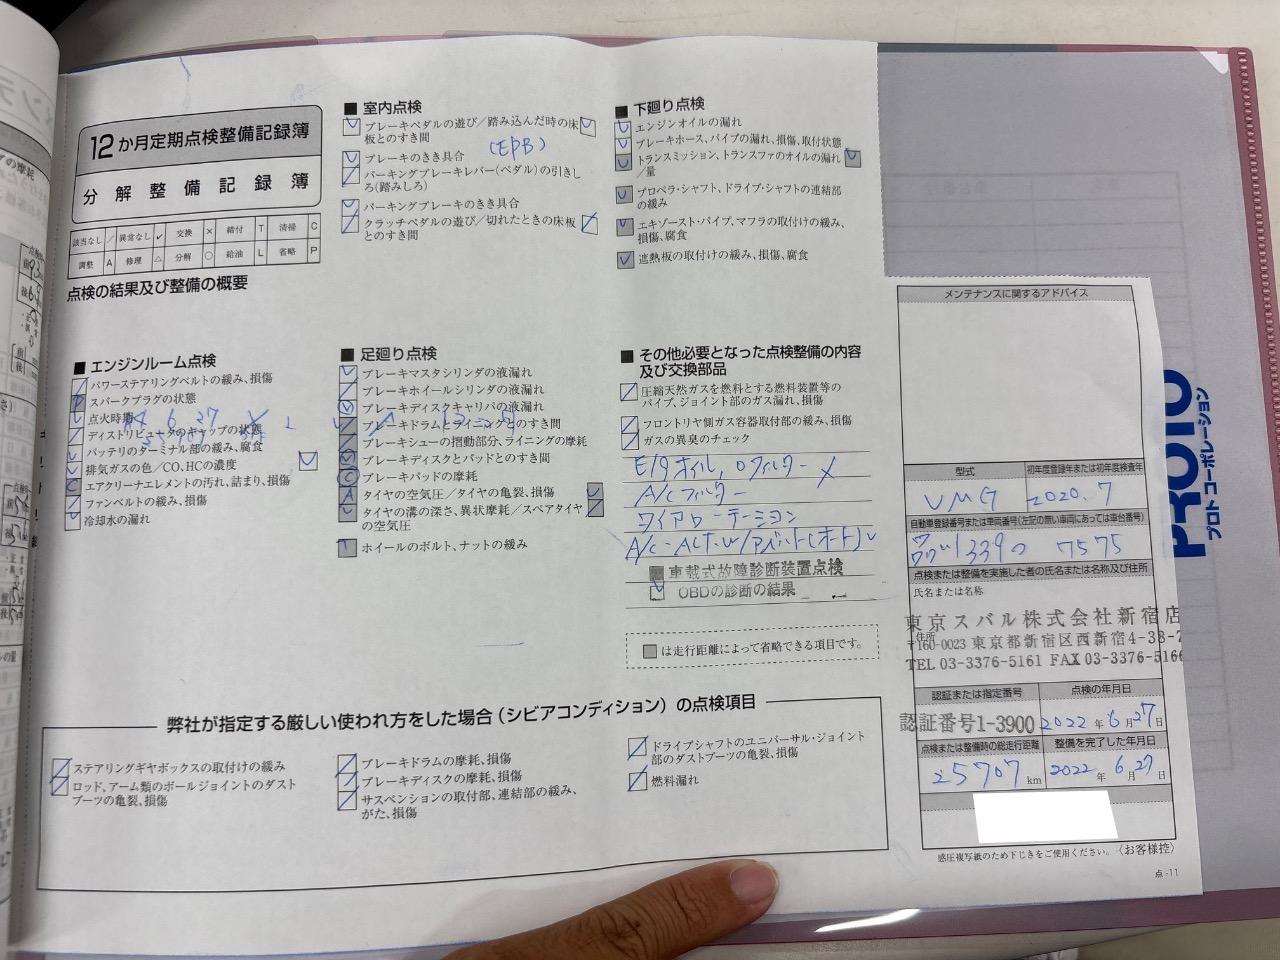 12か月定期点検整備記録簿
分解整備記録簿
該当なし ／ 異常なし ✓ 交換 × 締付 T 清掃 C
調整 A 修理 △ 分解 ○ 給油 L 省略 P
点検の結果及び整備の概要
■ 室内点検
ブレーキペダルの遊び／踏み込んだ時の床
板とのすき間
(EPB)
ブレーキのきき具合
パーキングブレーキレバー(ペダル)の引きし
ろ(踏みしろ)
パーキングブレーキのきき具合
クラッチペダルの遊び／切れたときの床板
とのすき間
■ 下廻り点検
エンジンオイルの漏れ
ブレーキホース、パイプの漏れ、損傷、取付状態
トランスミッション、トランスファのオイルの漏れ
／量
プロペラ・シャフト、ドライブ・シャフトの連結部
の緩み
エキゾースト・パイプ、マフラの取付けの緩み、
損傷、腐食
遮熱板の取付けの緩み、損傷、腐食
■ エンジンルーム点検
パワーステアリングベルトの緩み、損傷
スパークプラグの状態
点火時期
ディストリビュータのキャップの状態
バッテリのターミナル部の緩み、腐食
排気ガスの色／CO、HCの濃度
エアクリーナエレメントの汚れ、詰まり、損傷
ファンベルトの緩み、損傷
冷却水の漏れ
■ 足廻り点検
ブレーキマスタシリンダの液漏れ
ブレーキホイールシリンダの液漏れ
ブレーキディスクキャリパの液漏れ
ブレーキドラムとライニングとのすき間
ブレーキシューの摺動部分、ライニングの摩耗
ブレーキディスクとパッドとのすき間
ブレーキパッドの摩耗
タイヤの空気圧／タイヤの亀裂、損傷
タイヤの溝の深さ、異状摩耗／スペアタイヤ
の空気圧
ホイールのボルト、ナットの緩み
■ その他必要となった点検整備の内容
及び交換部品
圧縮天然ガスを燃料とする燃料装置等の
パイプ、ジョイント部のガス漏れ、損傷
フロントリヤ側ガス容器取付部の緩み、損傷
ガスの異臭のチェック
E/gオイル, Oフィルター ×
A/Cフィルター
タイヤローテーション
車載式故障診断装置点検
OBDの診断の結果
は走行距離によって省略できる項目です。
弊社が指定する厳しい使われ方をした場合(シビアコンディション)の点検項目
ステアリングギヤボックスの取付けの緩み
ロッド、アーム類のボールジョイントのダスト
ブーツの亀裂、損傷
ブレーキドラムの摩耗、損傷
ブレーキディスクの摩耗、損傷
サスペンションの取付部、連結部の緩み、
がた、損傷
ドライブシャフトのユニバーサル・ジョイント
部のダストブーツの亀裂、損傷
燃料漏れ
メンテナンスに関するアドバイス
型式 初年度登録年または初年度検査年
VMG 2020.7
自動車登録番号または車両番号(左記の無い車両にあっては車台番号)
1339の 7575
点検または整備を実施した者の氏名または名称及び住所
氏名または名称
東京スバル株式会社新宿店
住所
〒160-0023 東京都新宿区西新宿4-38-7
TEL 03-3376-5161 FAX 03-3376-5166
認証または指定番号 点検の年月日
認証番号1-3900 2022年6月27日
点検または整備時の総走行距離 整備を完了した年月日
25707 km 2022年6月27日
感圧複写紙のため下じきをご使用ください。〈お客様控〉
点-11
PROTO
プロトコーポレーション